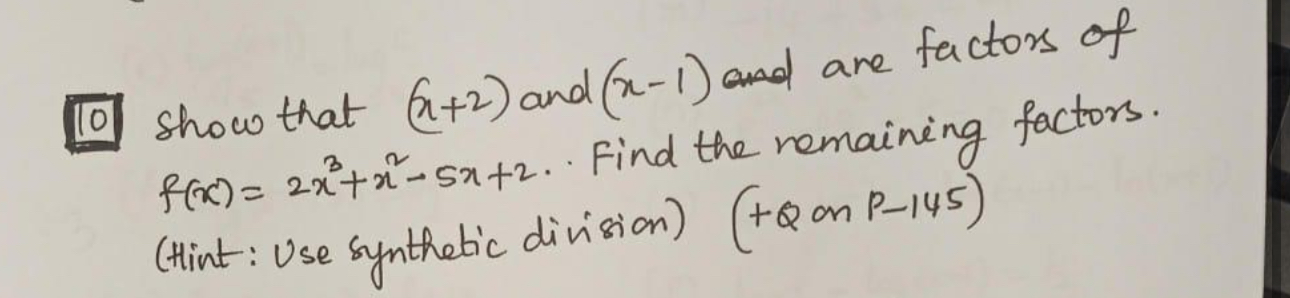 10 show that (x+2) and (x-1) and are factors of
f(x) = 2x³+x²-5x+2. . Find the remaining factors.
(Hint: Use synthetic division) (+Q on P-145)